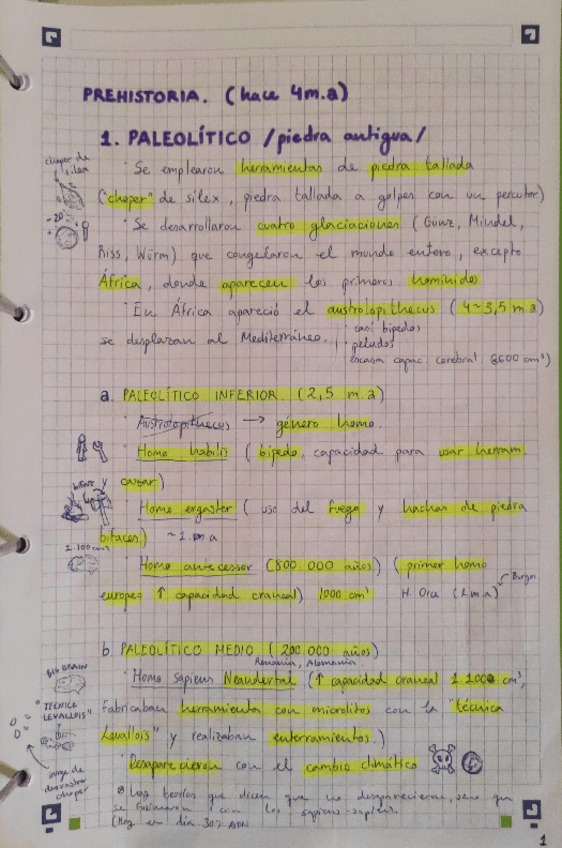 PREHISTORIA. (hace 4m.a)
1. PALEOLÍTICO /piedra antigua/
choper de silex
· Se emplearon herramientas de piedra tallada
("choper" de silex, piedra tallada a golpes con un percutor)
· Se desarrollaron cuatro glaciaciones (Günz, Mindel,
Riss, Würm) que congelaron el mundo entero, excepto
África, donde aparecen los primeros homínidos
· En África apareció el austrolopithecus (4~3,5 m.a)
se desplazan al Mediterráneo.
· casi bípedos
· peludos
escasa capac. cerebral (600 cm³)
a. PALEOLÍTICO INFERIOR. (2,5 m.a)
· Austrolopithecus → género homo.
· Homo habilis (bípedo, capacidad para usar herram.
y cazar)
bifaz
· Homo ergaster (uso del fuego y hachas de piedra
bifaces) ~1.m.a
· Homo antecessor (800.000 años) (primer homo
europeo ↑ capacidad craneal) 1000 cm³ H. Orce (1m.a)
Burgos
b PALEOLÍTICO MEDIO (200.000 años)
Alemania
BIG BRAIN
· Homo Sapiens Neandertal (↑ capacidad craneal 1.200 cm³,
TÉCNICA LEVALLOIS"
fabricaban herramienta con microlitos con la "técnica
Levallois" y realizaban enterramientos.)
· Desaparecieron con el cambio climático
choper
⊗ Hay teorías que dicen que no desaparecieron, sino que
se fusionaron con los sapiens-sapiens.
(Hoy en día 3% ADN
1